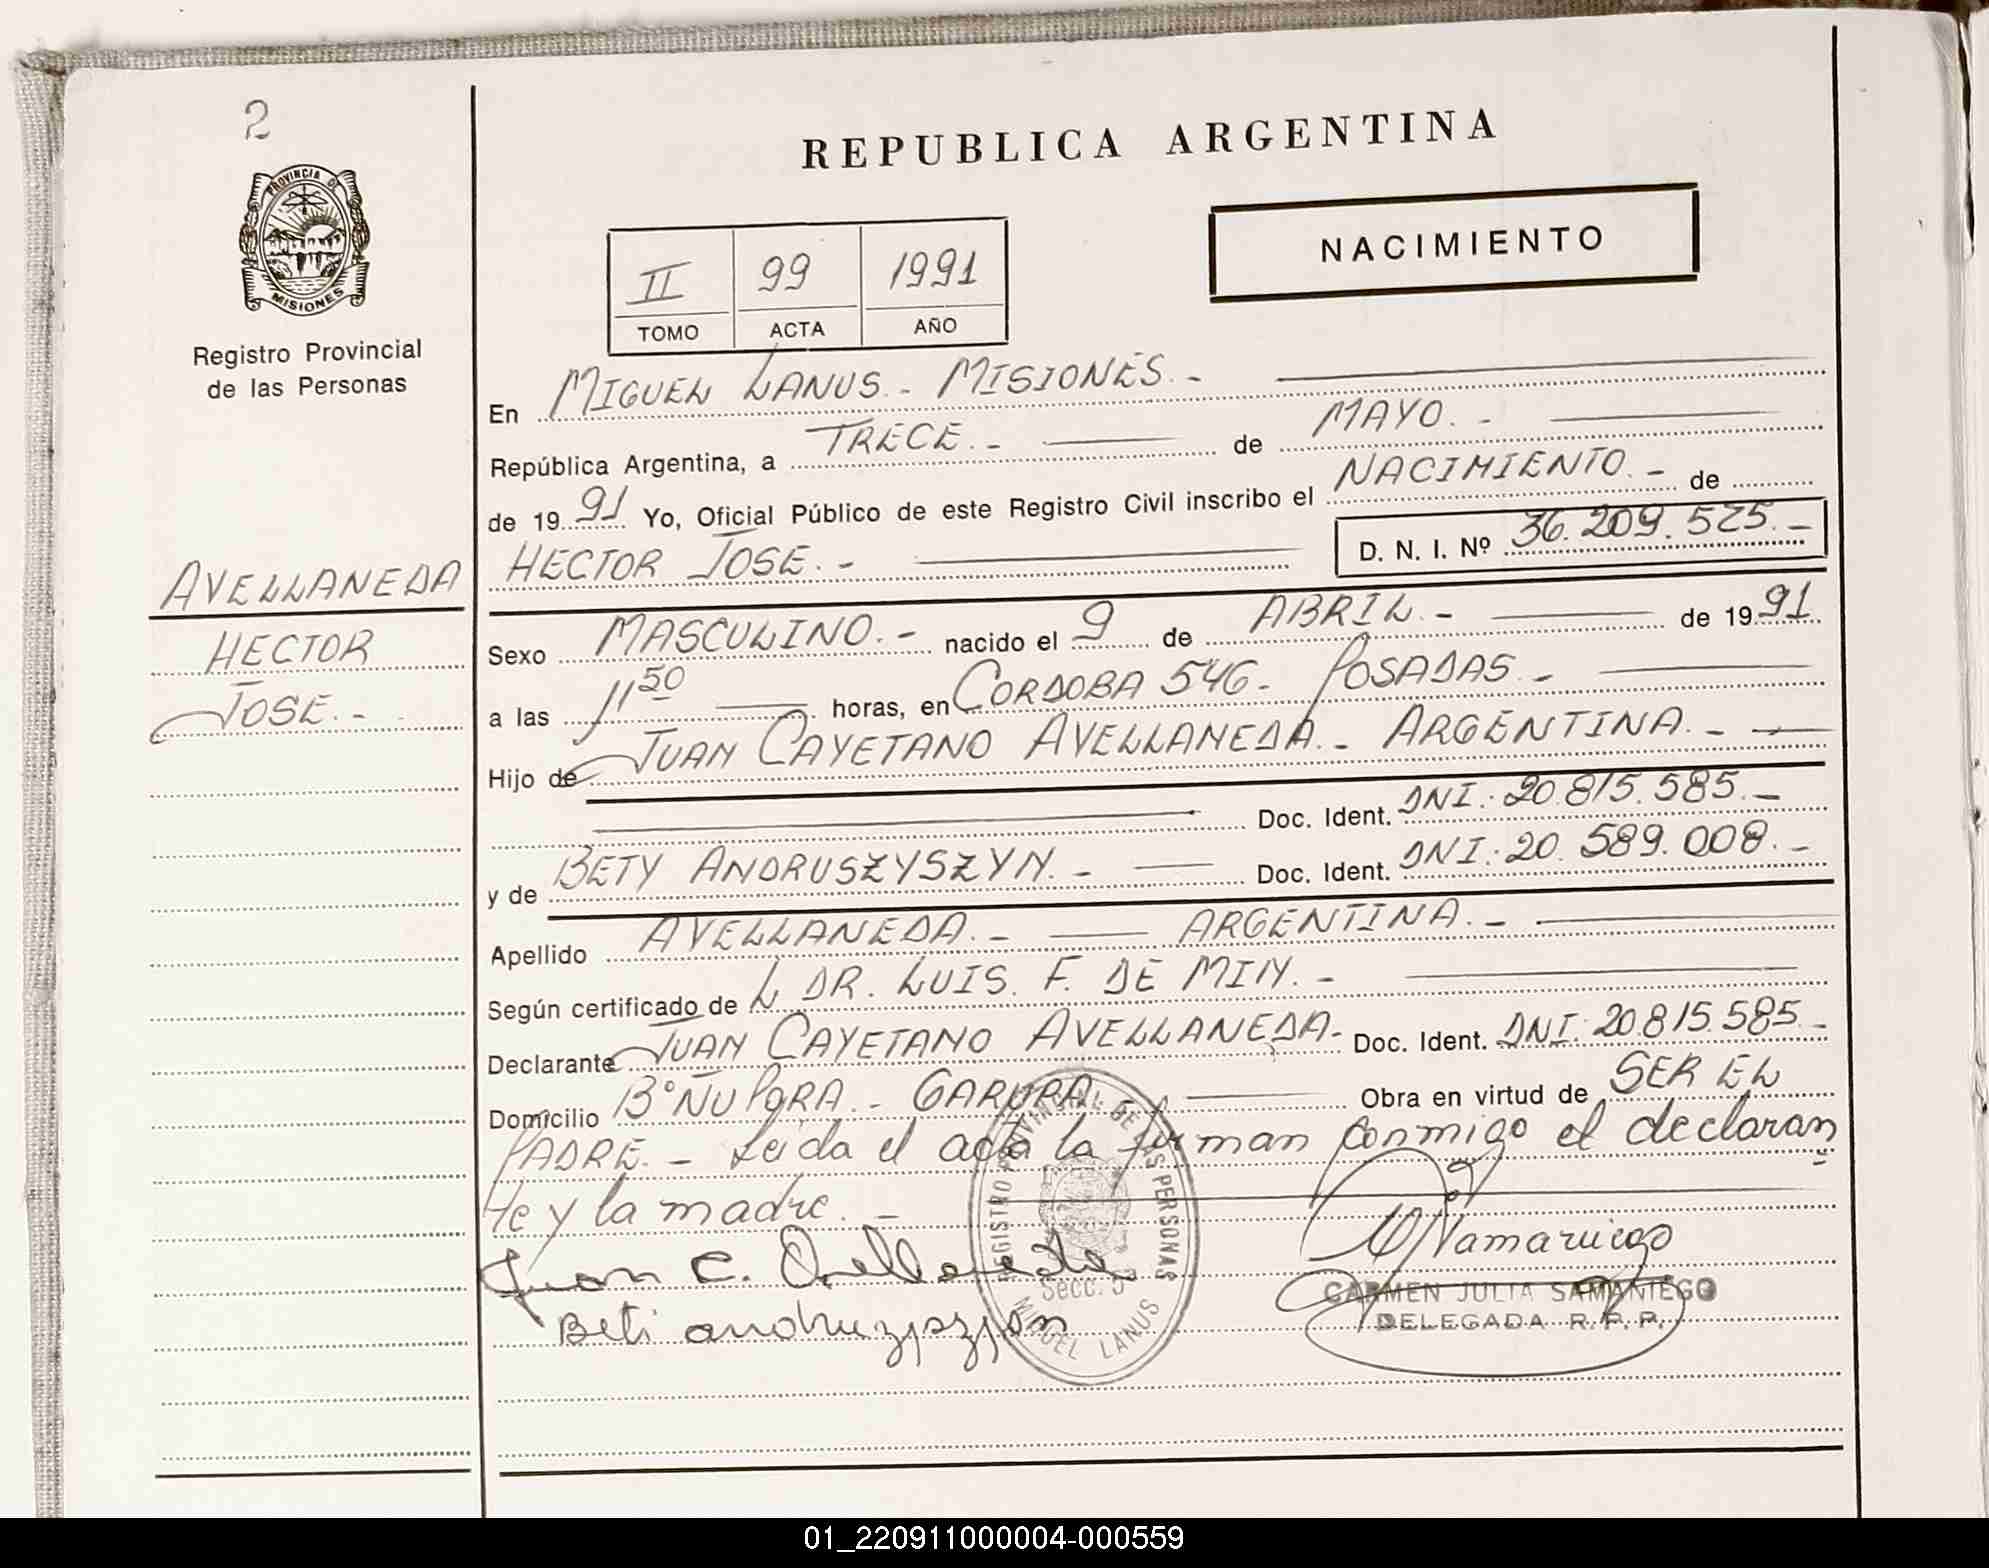 2
PROVINCIA DE
MISIONES
Registro Provincial
de las Personas
REPUBLICA ARGENTINA
NACIMIENTO
II 99 1991
TOMO ACTA AÑO
En MIGUEL LANUS.- MISIONES.-
República Argentina, a TRECE.- de MAYO.-
de 1991 Yo, Oficial Público de este Registro Civil inscribo el NACIMIENTO.- de
AVELLANEDA
HECTOR
JOSE.-
HECTOR JOSE.-
D. N. I. Nº 36.209.525.-
Sexo MASCULINO.- nacido el 9 de ABRIL.- de 1991
a las 11 50 horas, en CORDOBA 546- POSADAS.-
Hijo de JUAN CAYETANO AVELLANEDA.- ARGENTINA.-
Doc. Ident. DNI.: 20.815.585.-
y de BETY ANDRUSZYSZYN.- Doc. Ident. DNI.: 20.589.008.-
Apellido AVELLANEDA.- ARGENTINA.-
Según certificado de L DR. LUIS. F. DE MIN.-
Declarante JUAN CAYETANO AVELLANEDA- Doc. Ident. DNI: 20.815.585-
Domicilio Bº ÑU PORA.- GARUPA Obra en virtud de SER EL
PADRE.- Leida el acta la firman conmigo el declaran
te y la madre.-
Juan C. Avellaneda
Beti
REGISTRO PROVINCIAL DE LAS PERSONAS
Secc. 5ª
MIGUEL LANUS
CARMEN JULIA SAMANIEGO
DELEGADA R. P. P.
01_220911000004-000559